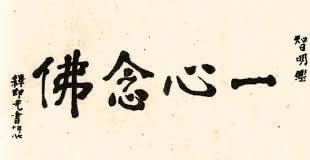 智明鑒
一心念佛
釋印光書